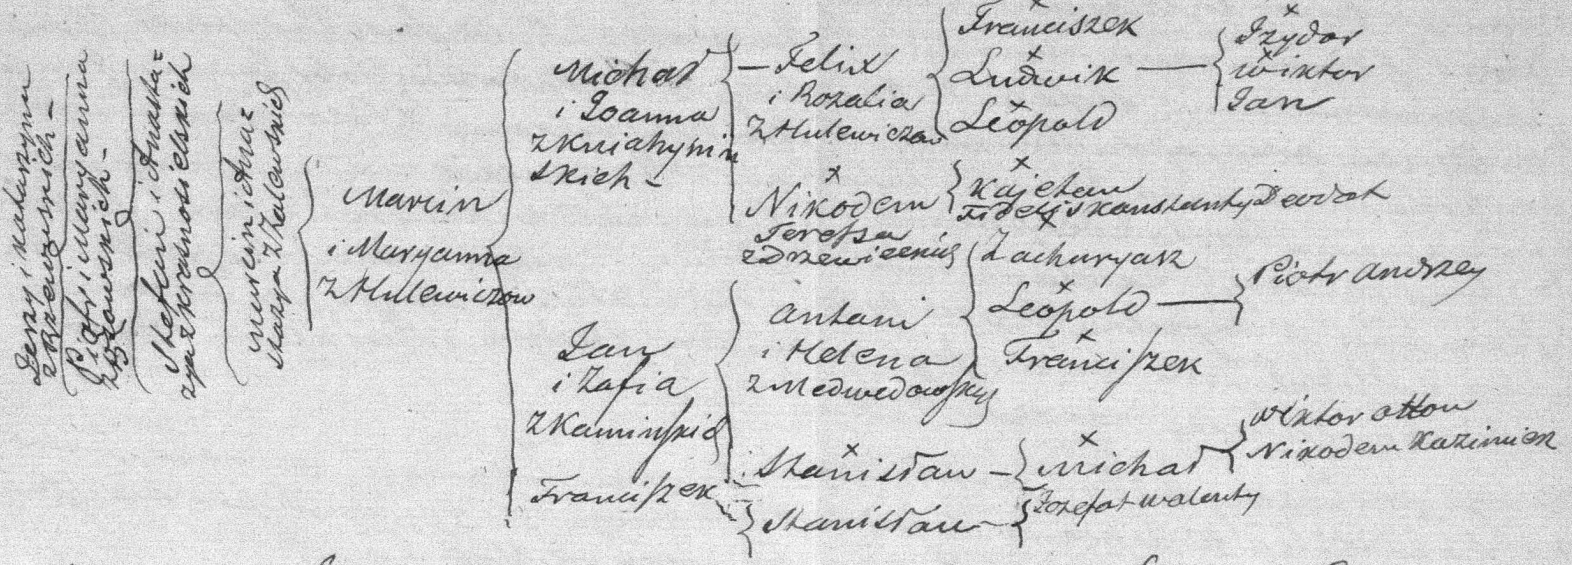 Jerzy i Katarzyna
z Rzewuskich -
Piotr i Maryanna
Stefan i Anasta=
zya z Krasnosielskich
Marcin i Ana=
stazya z Zalewskich
Marcin
i Maryanna
z Hulewiczow
Michał
i Joanna
z Kniahynin
skich -
Jan
i Zofia
z Kamińskich
Franciszek
Felix
i Rozalia
z Hulewiczow
Nikodem
Teressa
z Drzewieckich
Antoni
i Helena
z Medwedowskich
Stanisław
Stanisław
Franciszek
Ludwik
Leopold
Kajetan
Fidelis Konstanty Deodat
Zacharyasz
Leopold
Franciszek
Michał
Jozefat Walenty
Izydor
Wiktor
Jan
Piotr Andrzey
Wiktor Otton
Nikodem Kazimierz